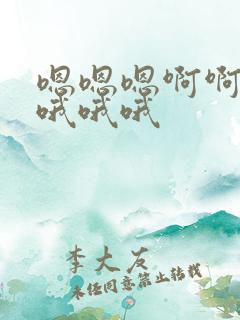 嗯嗯嗯啊啊
哦哦哦
李大友
未经同意禁止转载